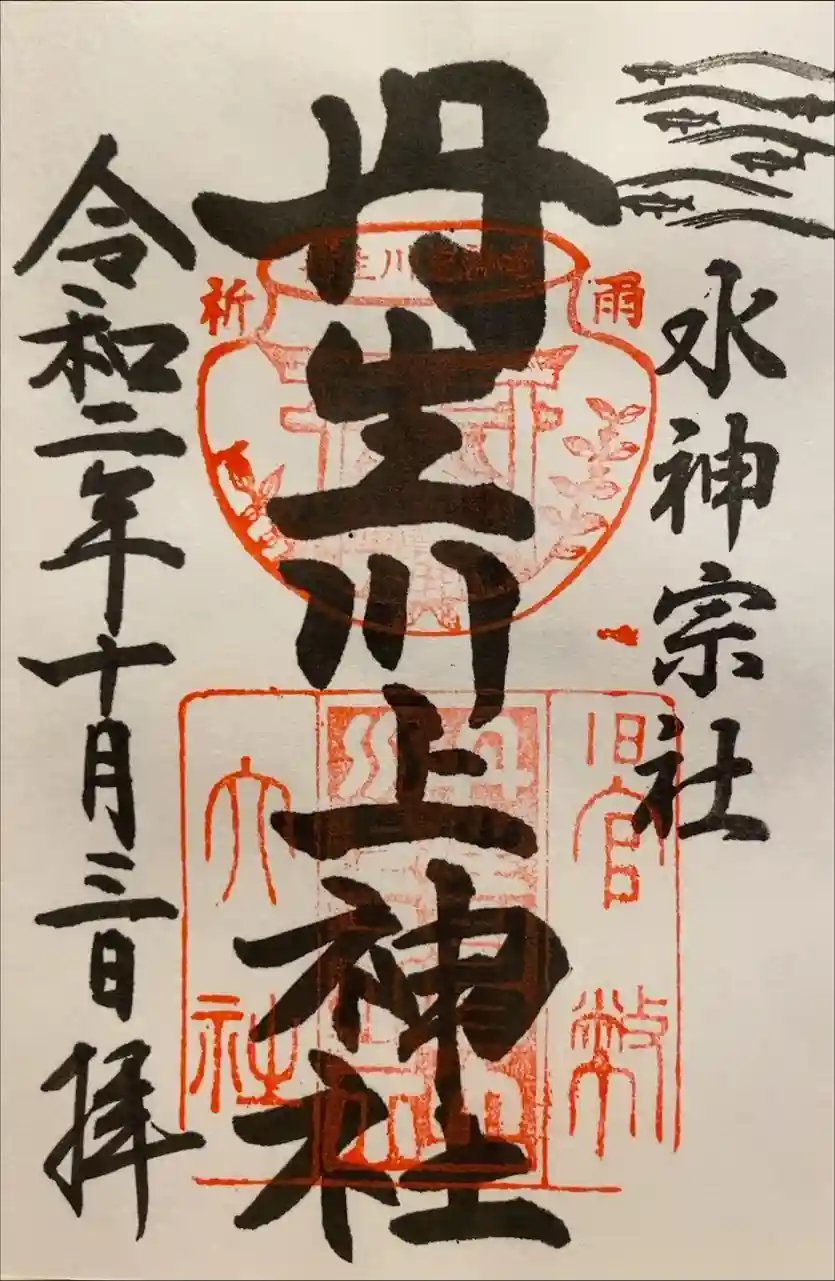 水神宗社
丹生川上神社
令和二年十月三日拝
雨
祈
旧官幣
大社